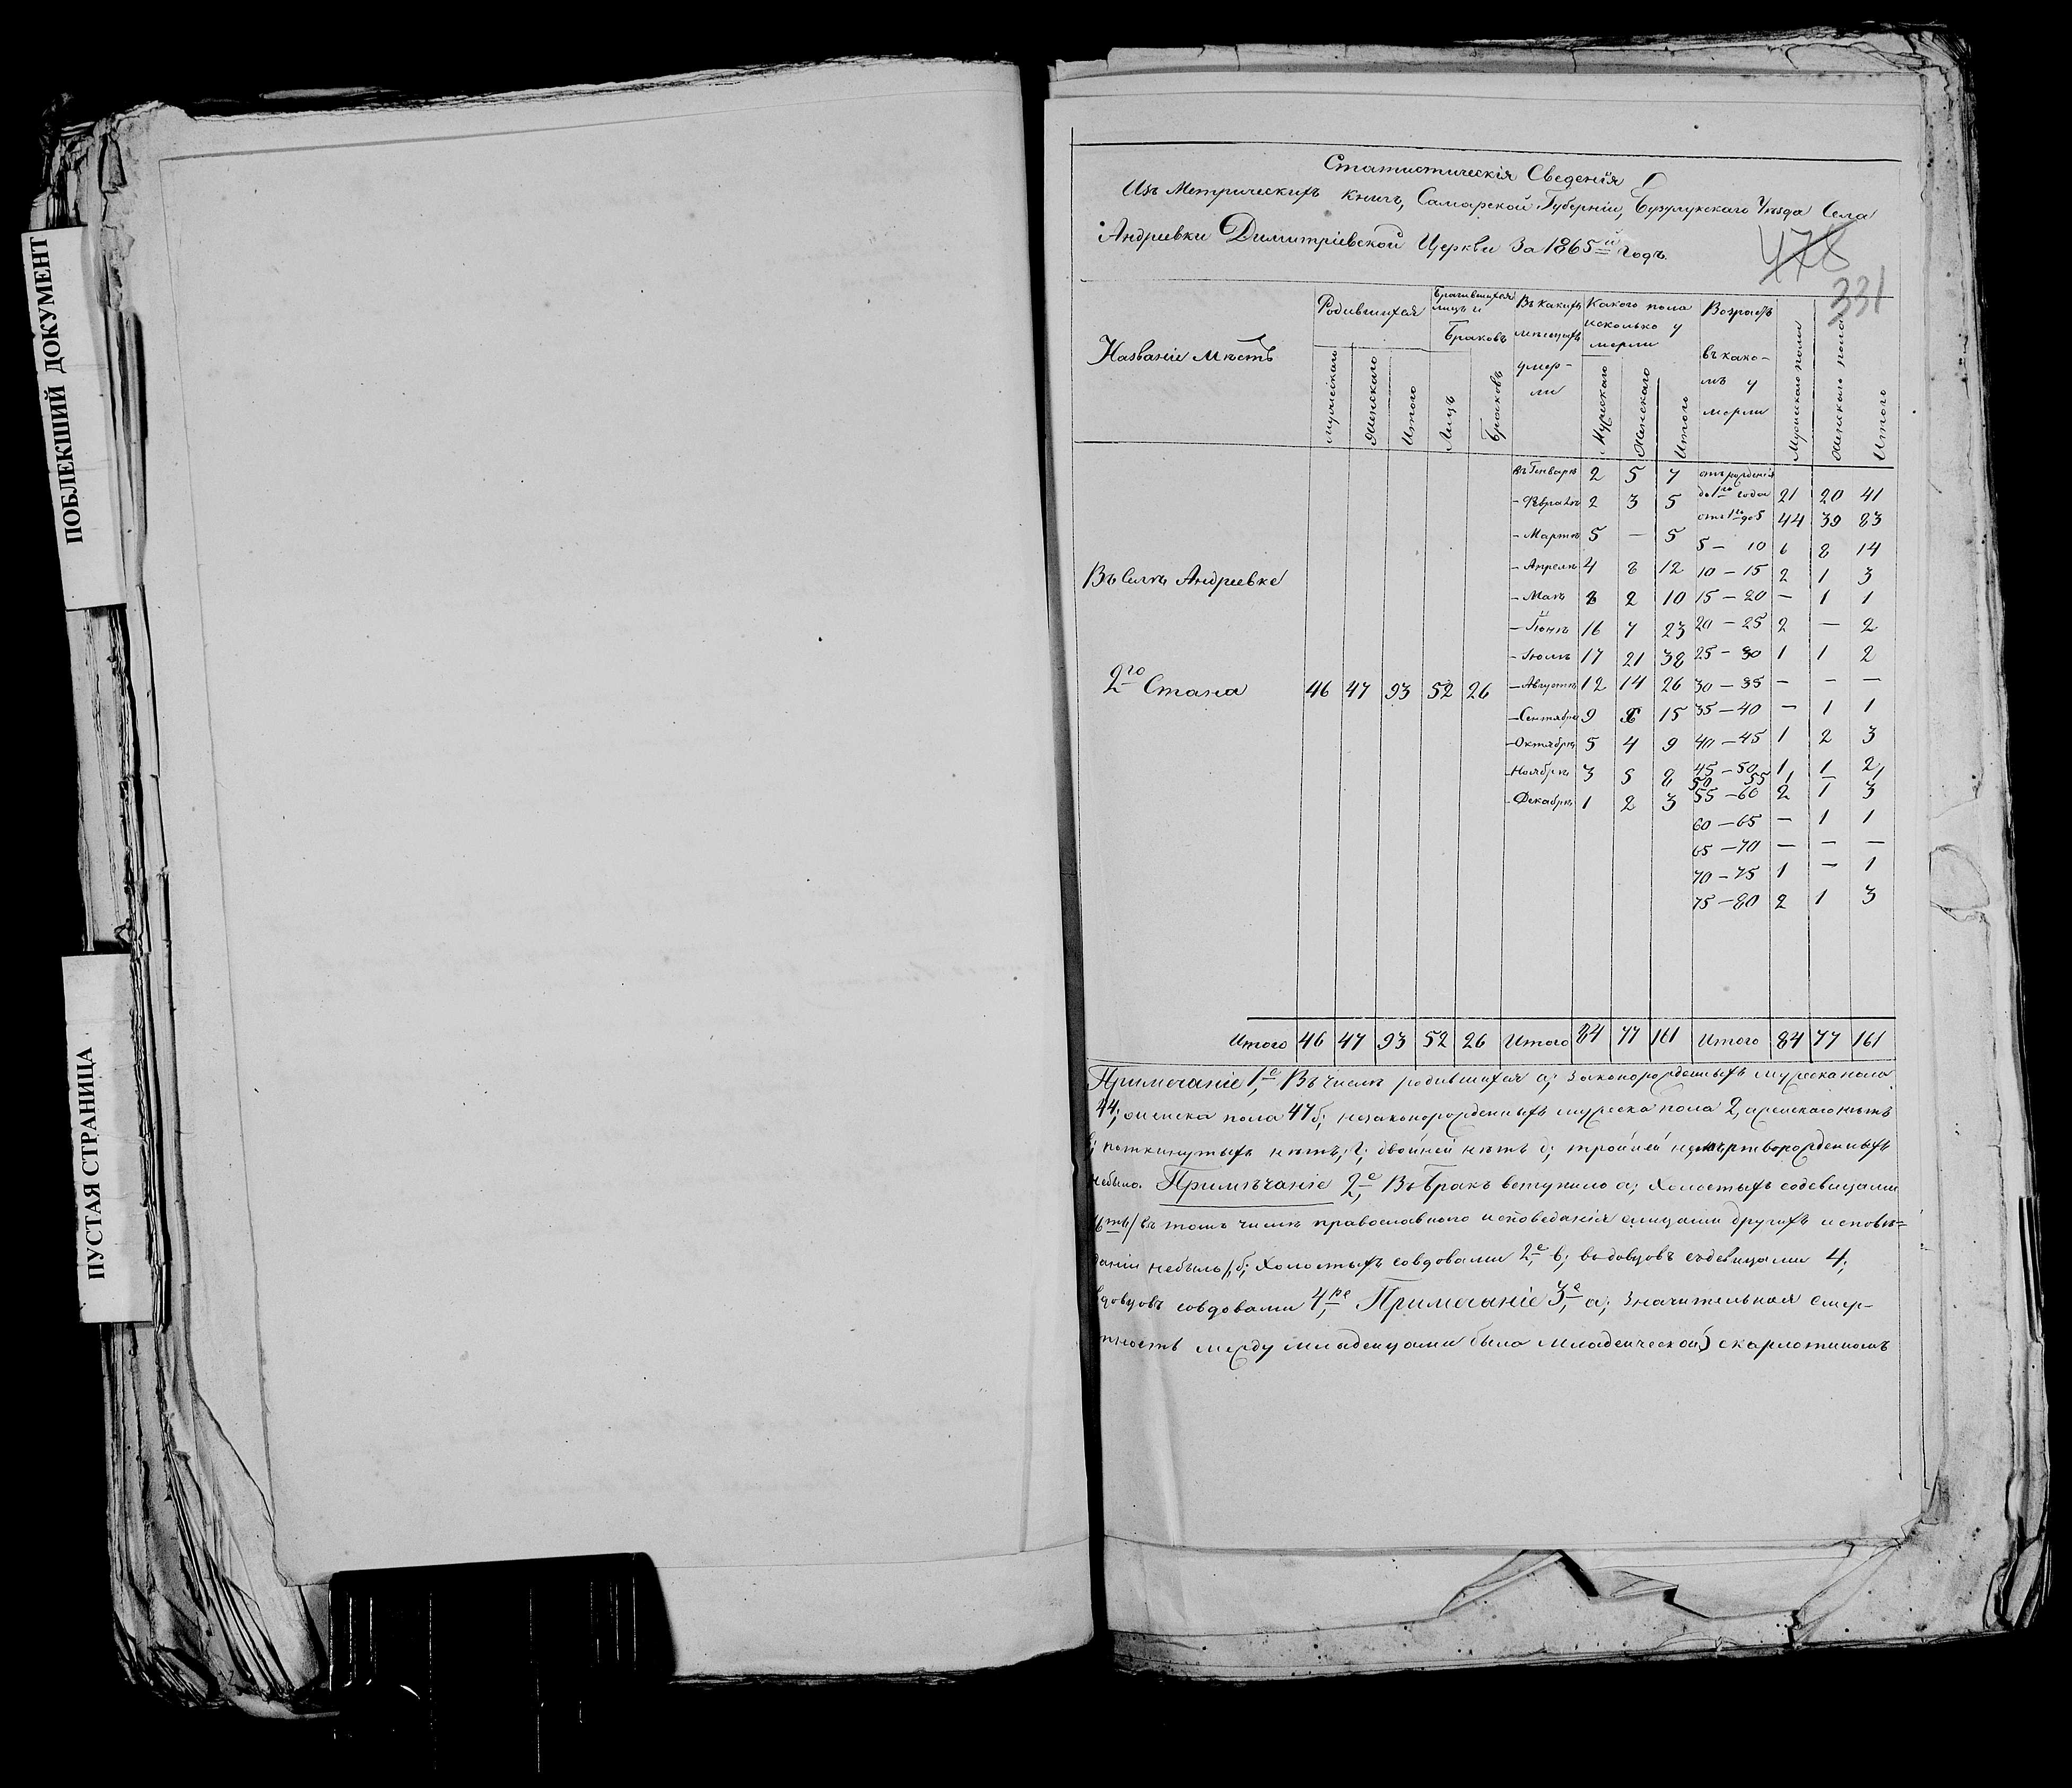 ПОБЛЕКШИЙ ДОКУМЕНТ
ПУСТАЯ СТРАНИЦА
Статистическія Сведенія
Изъ Метрическихъ книгъ, Самарской Губерніи, Бузулукскаго Уѣзда Села
Андреевки Димитріевской Церкви За 1865й годъ.
478
331
Названіе Мѣстъ
Родившихся
Мужескаго
Женскаго
Итого
Брачившихся лицъ и Браковъ
Лицъ
Браковъ
Въ какихъ месяцахъ умер-ли
Какого пола и сколько умерли
Мужескаго
Женскаго
Итого
Возрастъ въ како-мъ умерли
Мужескаго пола
Женскаго пола
Итого
Въ Селѣ Андреевке
2го Стана 46 47 93 52 26
въ Генварѣ 2 5 7
- Февралѣ 2 3 5
- Мартѣ 5 — 5
- Апрелѣ 4 8 12
- Маѣ 8 2 10
- Іюнѣ 16 7 23
- Іюлѣ 17 21 38
- Августѣ 12 14 26
- Сентябрѣ 9 6 15
- Октябрѣ 5 4 9
- Ноябрѣ 3 5 8
- Декабрѣ 1 2 3
отъ рожденія
до 1го года 21 20 41
отъ 1го до 5 44 39 83
5 — 10 6 8 14
10 — 15 2 1 3
15 — 20 — 1 1
20 — 25 2 — 2
25 — 30 1 1 2
30 — 35 — — —
35 — 40 — 1 1
40 — 45 1 2 3
45 — 50 1 1 2
50 55 1 — 1
55 — 60 2 1 3
60 — 65 — 1 1
65 — 70 — — —
70 — 75 1 — 1
75 — 80 2 1 3
Итого 46 47 93 52 26 Итого 84 77 161 Итого 84 77 161
Примечаніе 1,е Въ числѣ родившихся а; законорожденныхъ мужеска пола
44; женска пола 47 б; незаконорожденныхъ мужеска пола 2, а женскаго нѣтъ
поткинутыхъ нѣтъ; г; двойней нѣтъ д; тройней и мертворожденныхъ
небыло. Примѣчаніе 2,е Въ Бракъ вступило а; Холостыхъ содевицами
въ томъ числѣ православного исповеданія слицами другихъ исповѣ=
даніи небыло/, б; Холостыхъ совдовами 2,е в; вдовцовъ съдевицами 4;
вдовцовъ совдовами 4ре Примечаніе 3,е а; Значительная смер-
тность между младенцами была младенческой скарлотиномъ